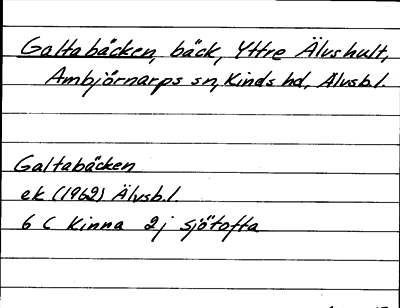 Galtabäcken, bäck, Yttre Älvshult,
Ambjörnarps sn, Kinds hd, Älvsb.l.
Galtabäcken
ek (1962) Älvsb.l.
6 C Kinna 2j Sjötofta